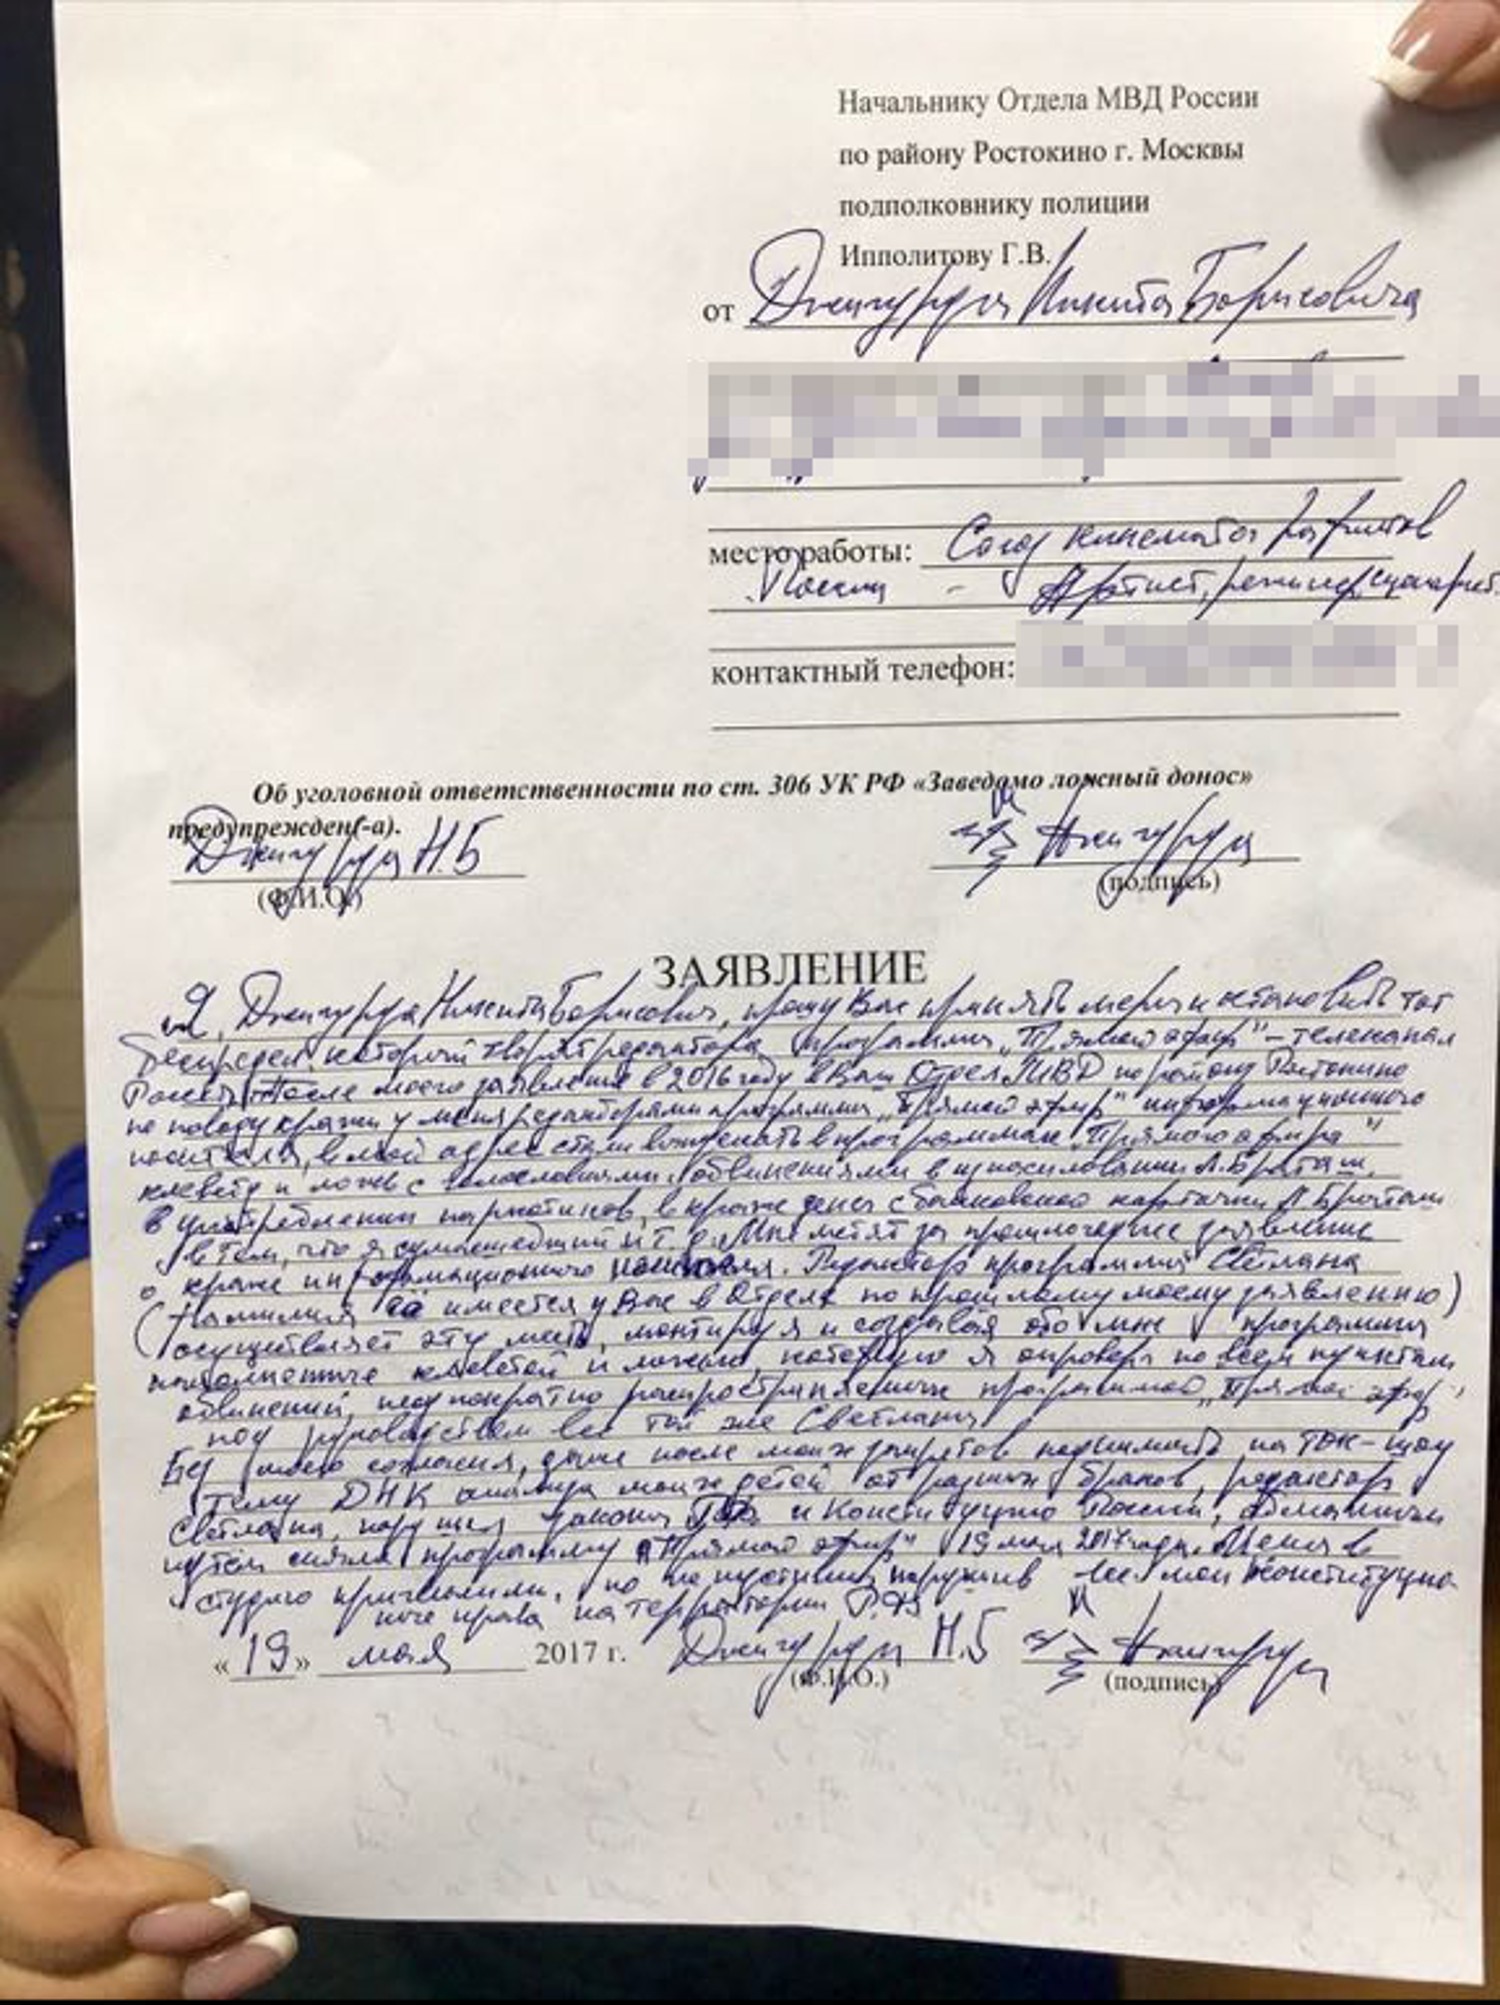 Начальнику Отдела МВД России
по району Ростокино г. Москвы
подполковнику полиции
Ипполитову Г.В.
от Джигурда Никита Борисовича
место работы: Союз кинематографистов
России - Артист, режиссер, сценарист.
контактный телефон:
Об уголовной ответственности по ст. 306 УК РФ «Заведомо ложный донос»
предупрежден(-а).
Джигурда Н.Б Джигурда
(Ф.И.О.) (подпись)
ЗАЯВЛЕНИЕ
Я, Джигурда Никита Борисович, прошу Вас принять меры и остановить тот
беспредел, который творят редактора программы "Прямой эфир" - телеканал
Россия. После моего заявления в 2016 году в Ваш Отдел МВД по району Ростокино
по поводу кражи у меня редакторами программы "Прямой эфир" информационного
носителя, в мой адрес стали в программах "Прямого эфира"
клевету и ложь с обвинениями в изнасиловании Л. Браташ,
в употреблении наркотиков, в краже денег с банковской карточки Л. Браташ
в том, что я сумасшедший и т.д. Мне мстят за прошлогоднее заявление
о краже информационного носителя. Редактор программы Светлана
(Фамилия её имеется у Вас в Отделе по прошлому моему заявлению)
осуществляет эту месть, монтируя и создавая обо мне программы
наполненные клеветой и ложью, которую я опроверг по всем пунктам
обвинений, неоднократно распространяемых программой "Прямой эфир",
под руководством всё той же Светланы
Без моего согласия, даже после моих запретов поднимать на ток-шоу
тему ДНК анализа моих детей от разных браков, редактор
Светлана, нарушая законы РФ и Конституцию России, обманным
путём сняла программу "Прямой эфир" 19 мая 2017 года. Меня в
студию пригласили, но не пустили, нарушив все мои конституцион
ные права на территории РФ
«19» мая 2017 г. Джигурда Н.Б Джигурда
(Ф.И.О.) (подпись)